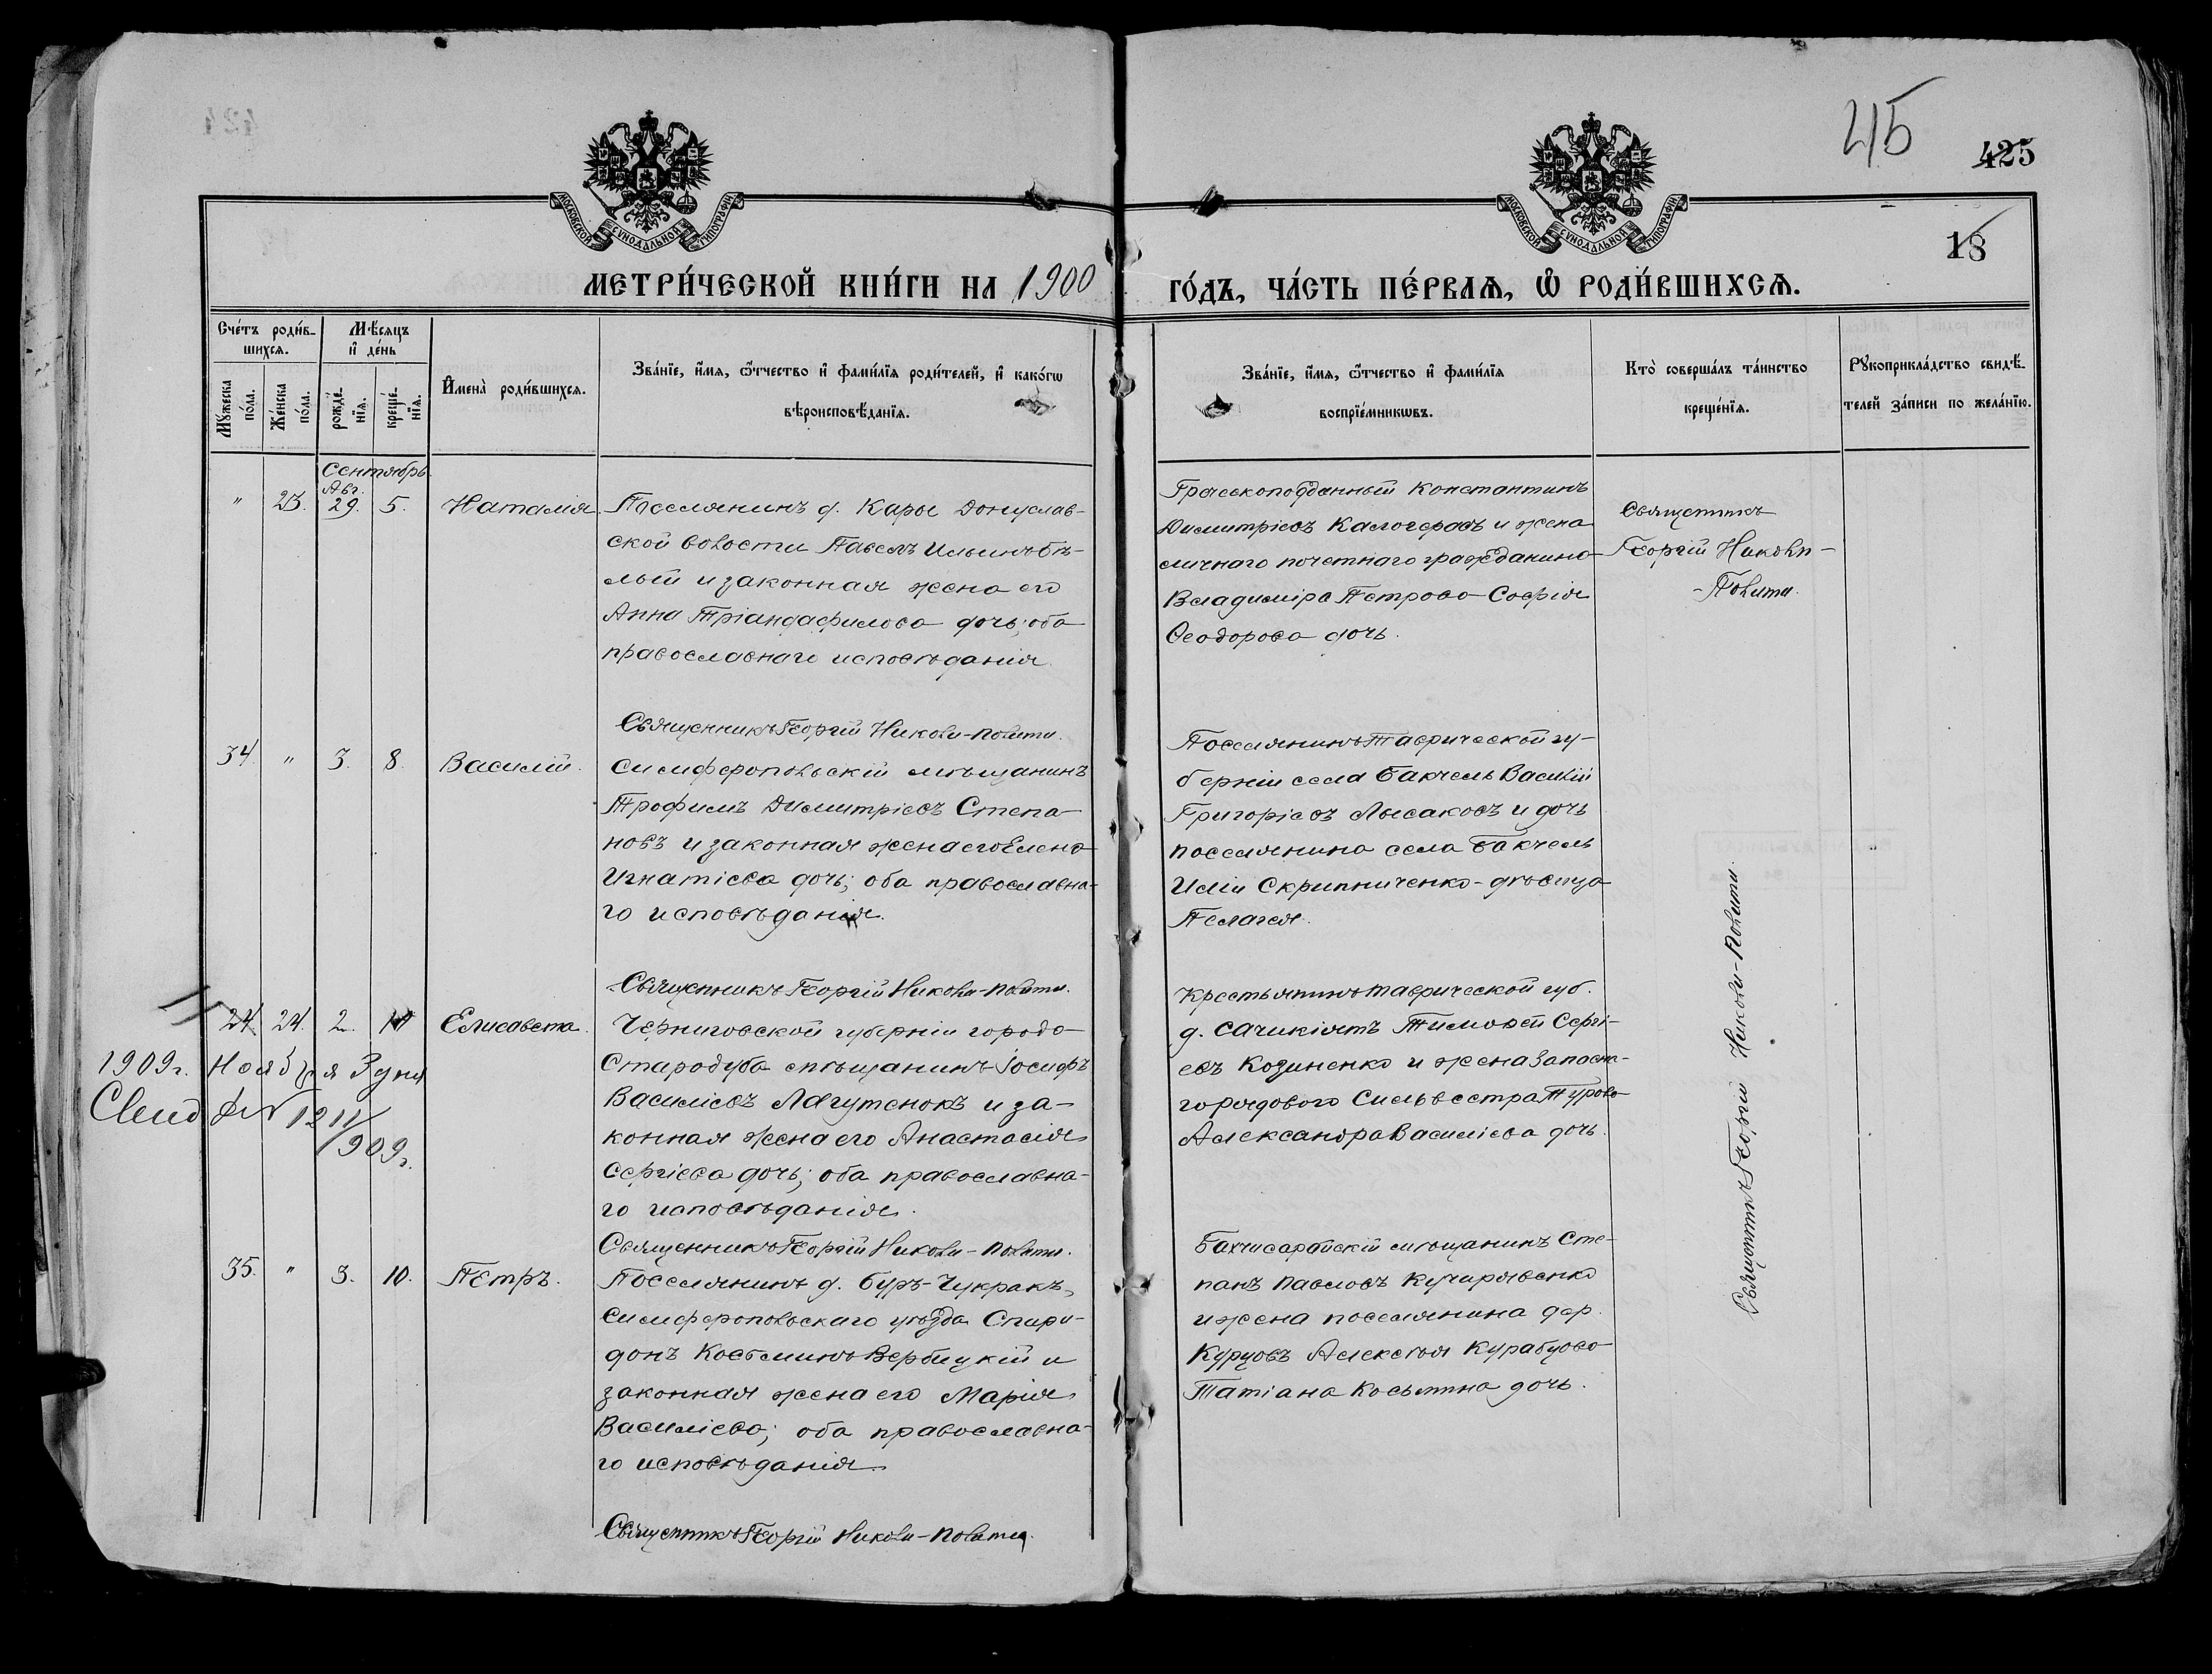 415
425
18
МОСКОВСКОЙ СѴНОДАЛЬНОЙ ТИПОГРАФІИ
МОСКОВСКОЙ СѴНОДАЛЬНОЙ ТИПОГРАФІИ
МЕТРИ́ЧЕСКОЙ КНИ́ГИ НА 1900
ГО́ДЪ, ЧА́СТЬ ПЕ́РВАѦ, Ѡ РОДИ́ВШИХСѦ.
Сче́тъ роди́в-
шихсѧ.
Мѣ́сѧцъ
и҆ де́нь
Мꙋжеска
по́ла.
Же́нска
по́ла.
рожде́-
нїѧ.
креще́-
нїѧ.
И҆мена̀ роди́вшихсѧ.
Зва́нїе, и҆́мѧ, ѻ҆́тчество и҆ фами́лїѧ роди́телей, и҆ како́гѡ
вѣроисповѣ́данїѧ.
Зва́нїе, и҆́мѧ, ѻ҆́тчество и҆ фами́лїѧ
воспрїе́мникѡвъ.
Кто̀ соверша́лъ та́инство
креще́нїѧ.
Рꙋкоприкла́дство свидѣ́-
телей за́писи по жела́нїю.
Сентябрь
Авг.
" 23. 29. 5. Наталія.
Поселянинъ д. Кары Донуслав-
ской волости Павелъ Ильинъ Бѣ-
лый и законная жена его
Анна Тріандафилова дочь; оба
православнаго исповѣданія.
Священникъ Георгій Николи-Полити.
Греческоподданный Константинъ
Димитріевъ Калогерасъ и жена
личнаго почетнаго гражданина
Владиміра Петрова София
Ѳеодорова дочь.
Священникъ
Георгій Николи-
-Полити.
34. " 3. 8. Василій.
Симферопольскій мѣщанинъ
Трофимъ Димитріевъ Степа-
новъ и законная жена его Елена
Игнатіева дочь; оба православна-
го исповѣданія.
Священникъ Георгій Николи-Полити.
Поселянинъ Таврической гу-
берніи села Бакчель Василій
Григоріевъ Лысаковъ и дочь
поселянина села Бакчель
Иліи Скрипниченко-дѣвица
Пелагея.
24. 24. 2. 10 Елисавета.
1909г. Ноября 3 дня
Свид № 1211/909г.
Черниговской губерніи города
Стародуба мѣщанинъ Іосифъ
Василіевъ Лагутенокъ и за-
конная жена его Анастасія
Сергіева дочь; оба православна-
го исповѣданія.
Священникъ Георгій Николи-Полити.
Крестьянинъ Таврической губ.
д. Сачикіятъ Тимоѳей Сергі-
евъ Козиненко и жена запасна-
го рядового Сильвестра Турова
Александра Василіева дочь.
35. " 3. 10. Петръ.
Поселянинъ д. Буръ-Чукракъ,
Симферопольскаго уѣзда Спири-
донъ Косьминъ Вербицкій и
законная жена его Марія
Василіева; оба православна-
го исповѣданія.
Священникъ Георгій Николи-Полити
Бахчисарайскій мѣщанинъ Сте-
панъ Павловъ Кучерявенко
и жена поселянина дер.
Курцовъ Алексѣя Курабцова
Татіана Косьмина дочь.
Священникъ Георгій Николи-Полити.